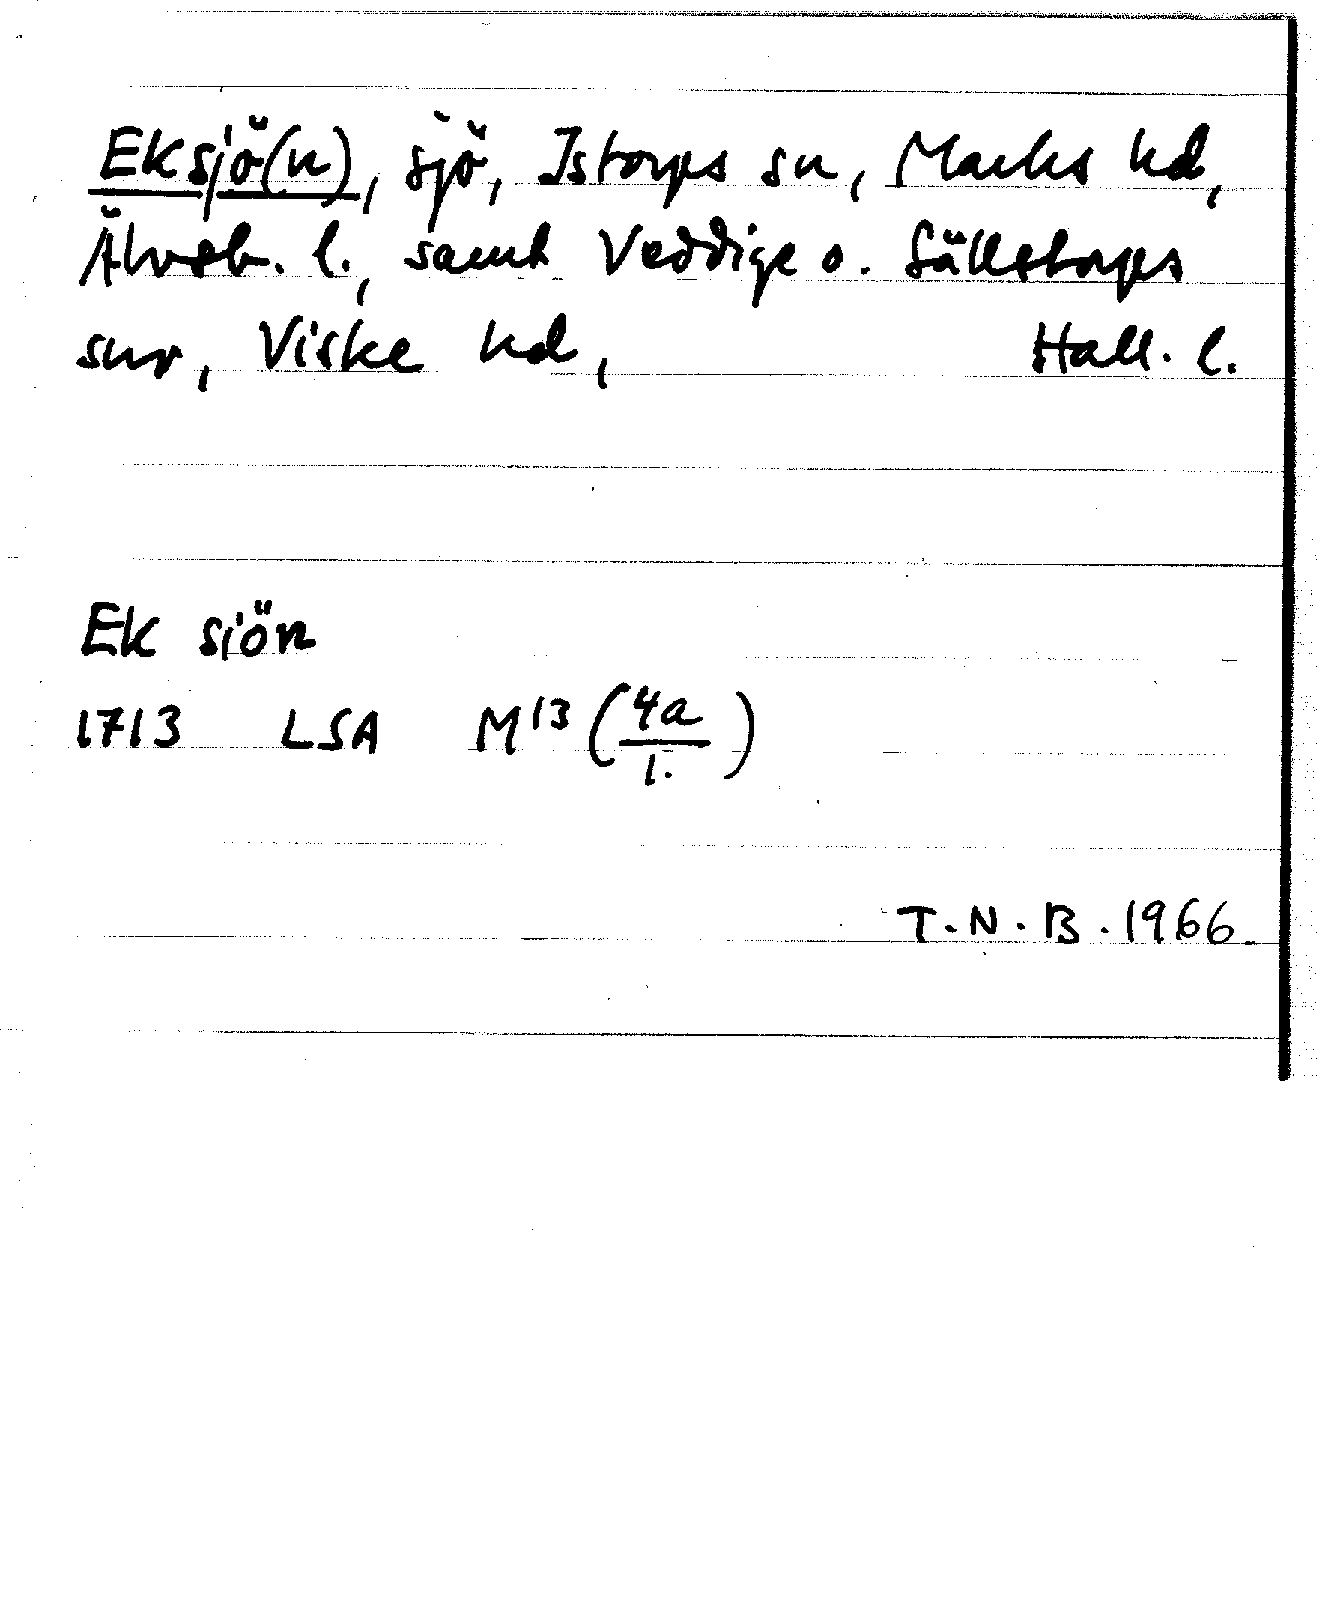 Eksjö(n), sjö, Istorps sn, Marks hd,
Älvsb. l., samt Veddige o. Sällstorps
snr, Viske hd, Hall. l.
Ek siön
1713 LSA M13 (4a/1.)
T.N.B. 1966